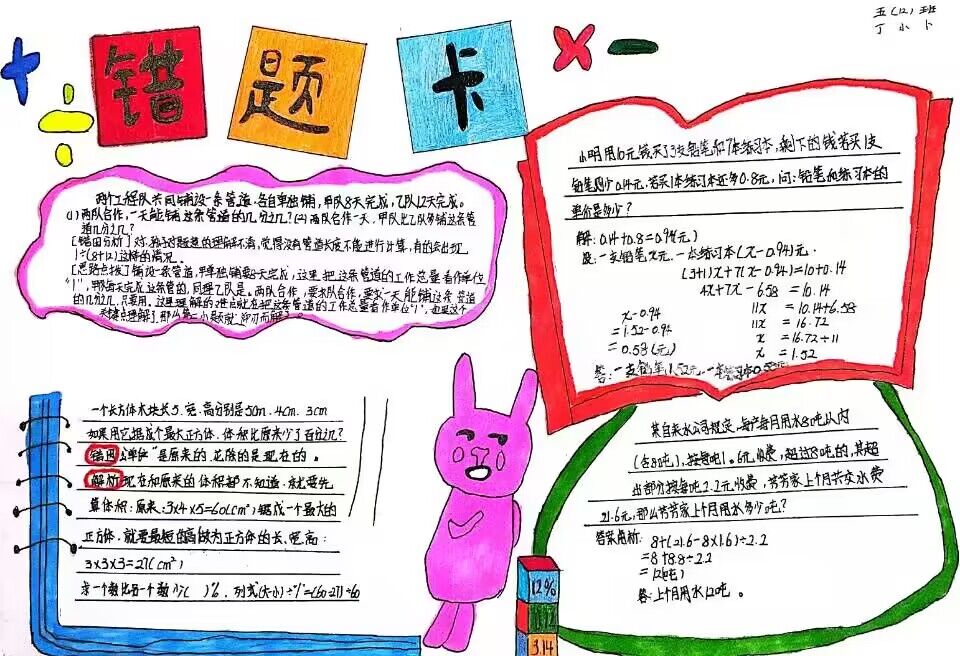 五(12)班
丁小卜
错题卡
小明用10元钱买了3支铅笔和7本练习本,剩下的钱若买1支
铅笔则少0.14元,若买1本练习本还多0.8元,问:铅笔和练习本的
单价是多少?
解:0.14+0.8=0.94(元)
设:一支铅笔x元.一本练习本(x-0.94)元.
(3+1)x+7(x-0.94)=10+0.14
4x+7x-6.58=10.14
11x=10.14+6.58
11x=16.72
x=16.72÷11
x=1.52
x-0.94
=1.52-0.94
=0.58(元)
答:一支铅笔1.52元.一本练习本0.58元
两个工程队共同铺设一条管道,各自单独铺,甲队8天完成,乙队12天完成。
(1)两队合作,一天能铺这条管道的几分之几?(2)两队合作一天,甲队比乙队多铺这条管
道几分之几?
[错因分析]对 的理解不清,觉得没有管道长度不能进行计算,有的会出现
1÷(8+12)这样的情况。
[思路点拨]铺设一条管道,甲单独铺要8天完成,这里把这条管道的工作总量看作单位
"1",甲队每天完成这条管的,同理乙队是。两队合作,要求队合作,要求一天能铺这条管道
的几分之几,只要用。这里理解的难点就在把这条管道的工作总量看作单位"1",也是这个
关键点理解了,那么第二小题就迎刃而解了。
一个长方体木块长、宽、高分别是5cm.4cm.3cm
如果用它锯成个最大正方体,体积比原来少了百分之几?
错因 单位"是原来的,花除的是现在的。
解析 现在和原来的体积都不知道,就要先
算体积:原来:3×4×5=60(cm³)锯成一个最大的
正方体,就要最短的高做为正方体的长、宽、高:
3×3×3=27(cm³)
求一个数比另一个数少( )%,列式(大-小)÷"1"=(60-27)÷60
某自来水公司规定,每户每月用水8吨以内
(含8吨),按每吨1。6元收费,超过8吨的,其超
出部分按每吨2.2元收费,芳芳家上个月共交水费
21.6元,那么芳芳家上个月用水多少吨?
答案解析:8+(21.6-8×1.6)÷2.2
=8+8.8÷2.2
=12(吨)
答:上个月用水12吨。
12%
3.14